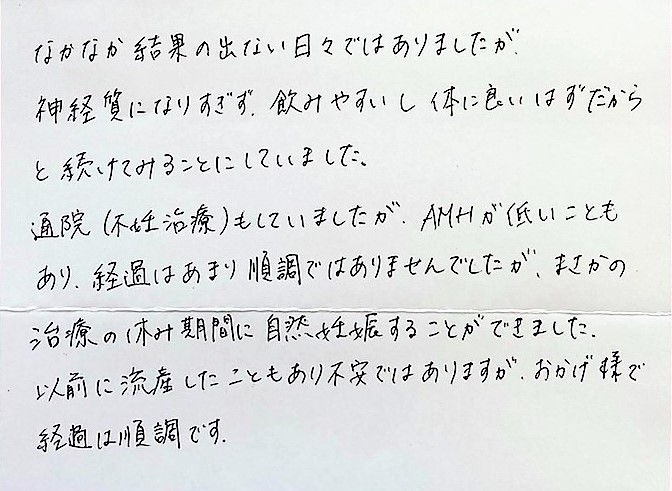 なかなか結果の出ない日々ではありましたが、
神経質になりすぎず、飲みやすいし体に良いはずだから
と続けてみることにしていました。
通院(不妊治療)もしていましたが、AMHが低いことも
あり、経過はあまり順調ではありませんでしたが、まさかの
治療の休み期間に自然妊娠することができました。
以前に流産したこともあり不安ではありますが、おかげ様で
経過は順調です。